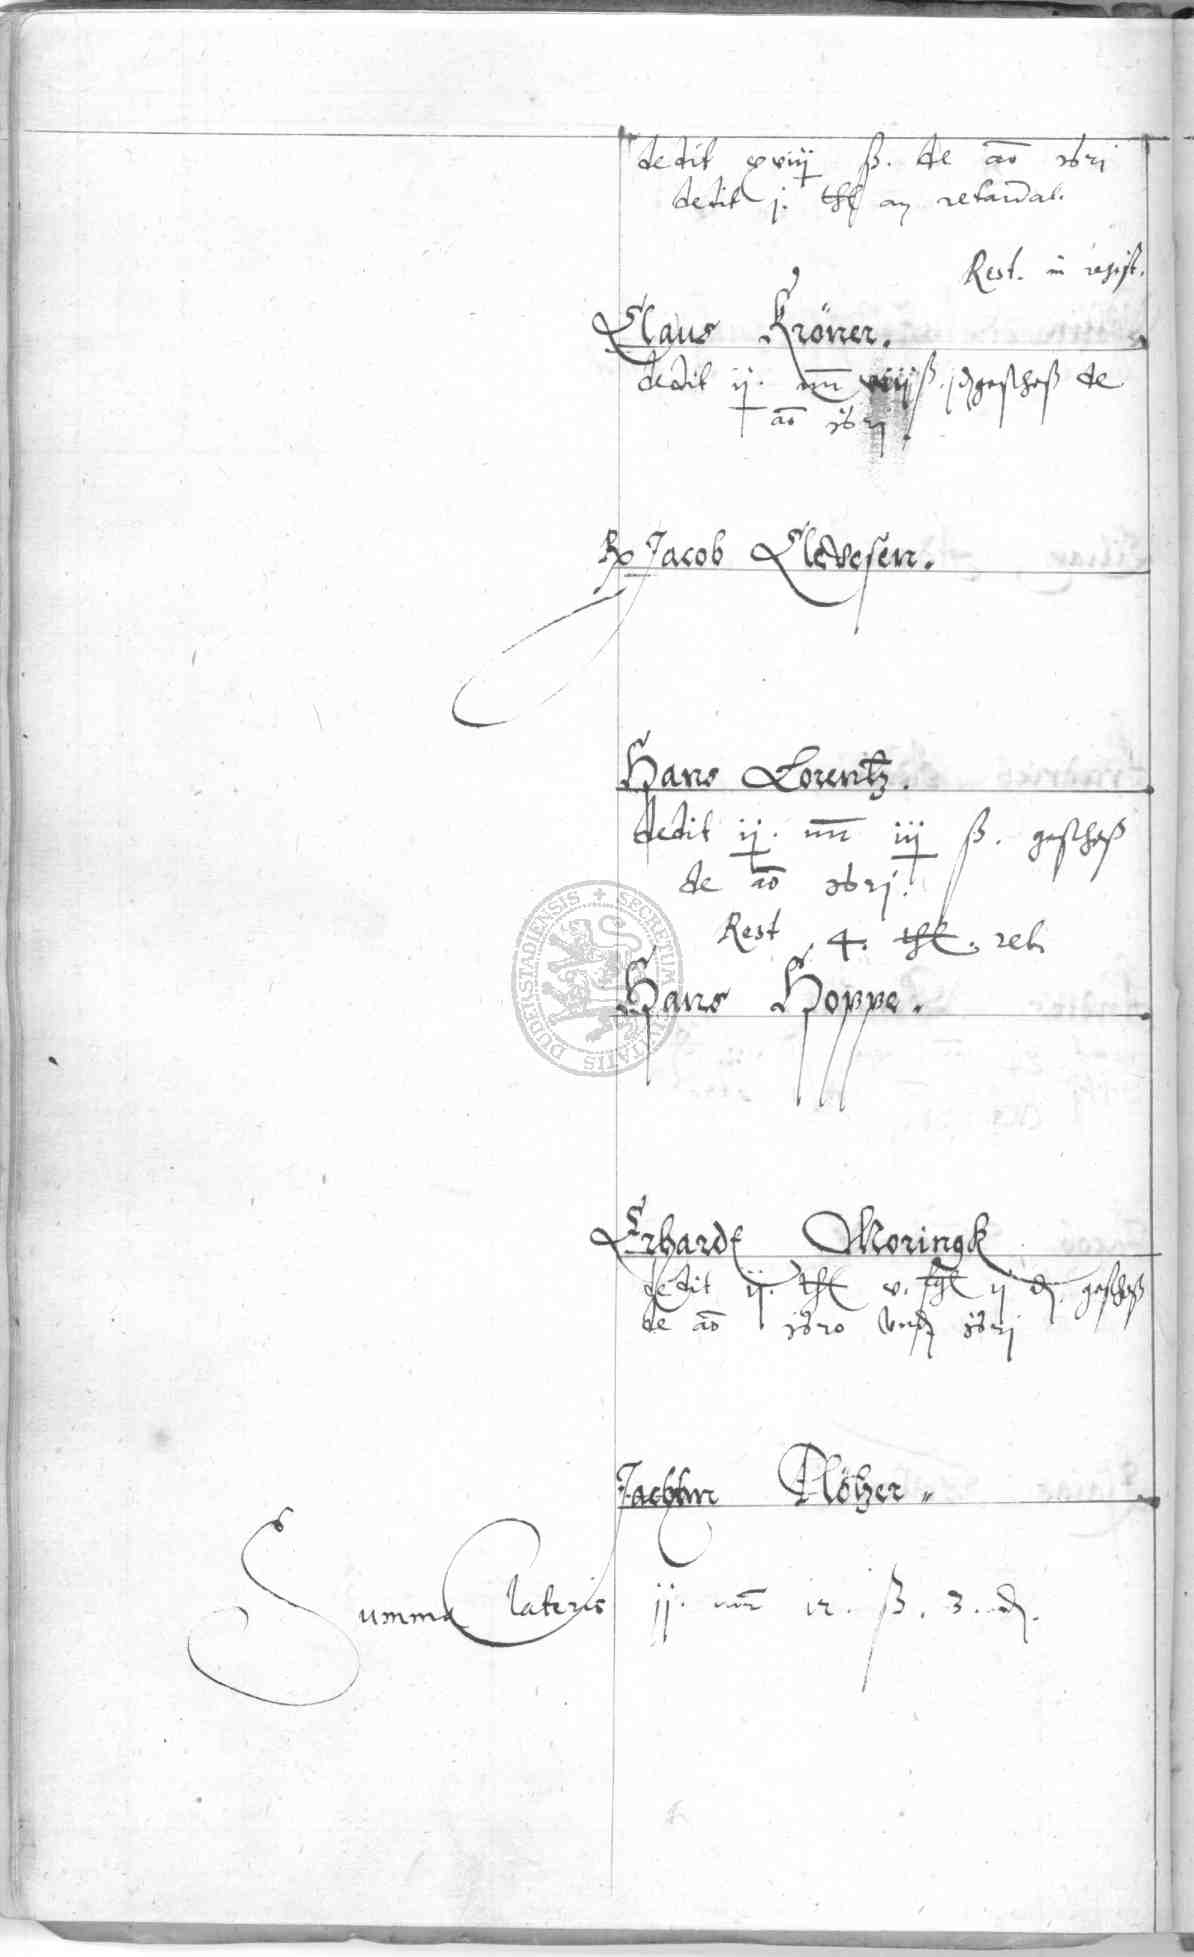 dedit xviiij ß. de ao 1621
dedit j. thl an retardat.
Rest. in regist.
Claus Kröner.
dedit ij. mr viiij ß. j ₰ geschoß de
ao 1621
Jacob Clevesen.
Hans Lorentz.
dedit ij. mr iij ß. geschoß
de ao 1621.
Rest 4. thl. ret.
Hans Hoppe.
SECRETUM CIVITATIS DUDERSTADIENSIS
Erhardt Moringk
dedit ij. thl v. fgl ij ₰. geschoß
de ao 1620 vnd 1621
Jachim Plötzer.
Summa lateris ij. mr 12. ß. 3. ₰.